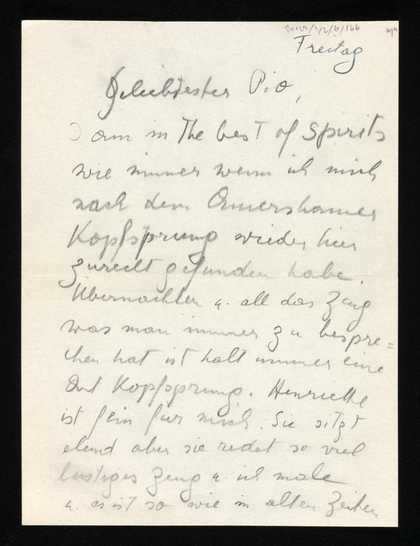 Freitag
Geliebtester Pio,
I am in the best of spirits
wie immer wenn ich mich
nach dem Amershamer
Kopfsprung wieder hier
zurecht gefunden habe.
Übernachten u. all das Zeug
was man immer zu bespre=
chen hat ist halt immer eine
Art Kopfsprung. Henriette
ist fein für mich. Sie sitzt
elend aber sie redet so viel
lustiges Zeug u. ich male
u. es ist so wie in alten Zeiten